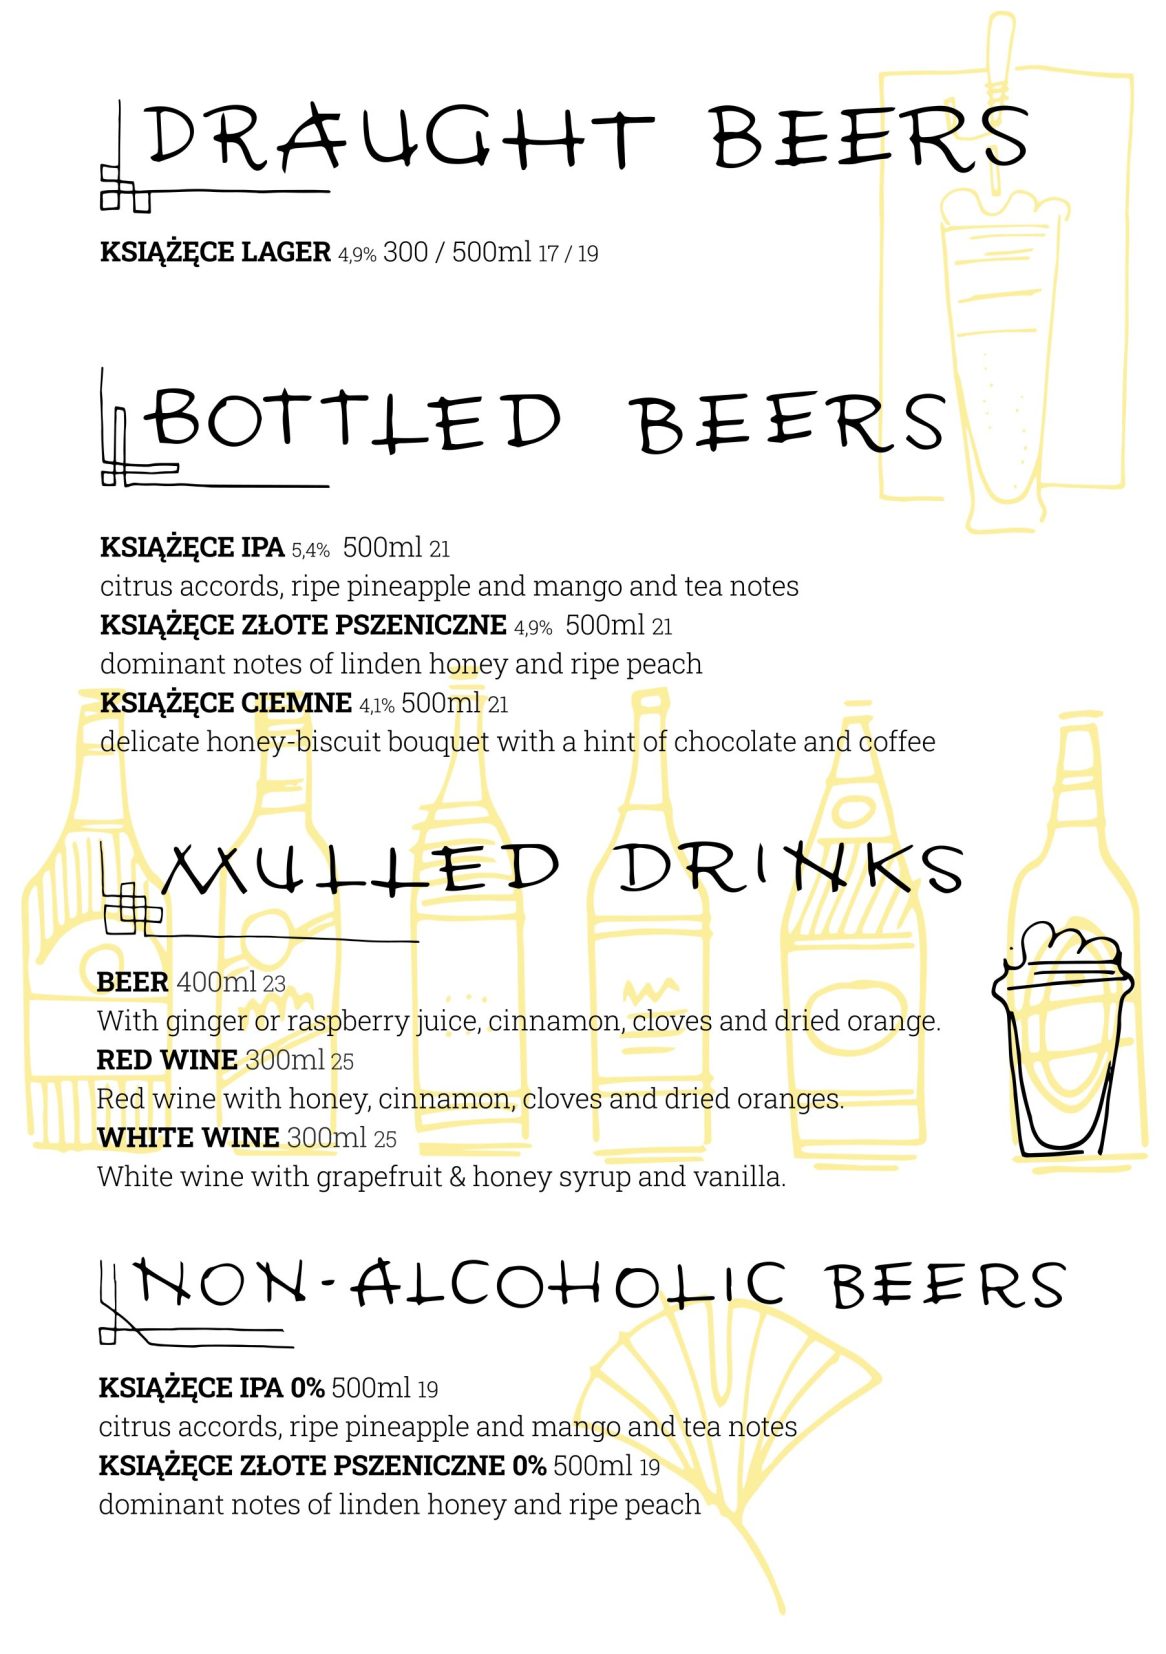 DRAUGHT BEERS
KSIĄŻĘCE LAGER 4,9% 300 / 500ml 17 / 19
BOTTLED BEERS
KSIĄŻĘCE IPA 5,4% 500ml 21
citrus accords, ripe pineapple and mango and tea notes
KSIĄŻĘCE ZŁOTE PSZENICZNE 4,9% 500ml 21
dominant notes of linden honey and ripe peach
KSIĄŻĘCE CIEMNE 4,1% 500ml 21
delicate honey-biscuit bouquet with a hint of chocolate and coffee
MULLED DRINKS
BEER 400ml 23
With ginger or raspberry juice, cinnamon, cloves and dried orange.
RED WINE 300ml 25
Red wine with honey, cinnamon, cloves and dried oranges.
WHITE WINE 300ml 25
White wine with grapefruit & honey syrup and vanilla.
NON-ALCOHOLIC BEERS
KSIĄŻĘCE IPA 0% 500ml 19
citrus accords, ripe pineapple and mango and tea notes
KSIĄŻĘCE ZŁOTE PSZENICZNE 0% 500ml 19
dominant notes of linden honey and ripe peach